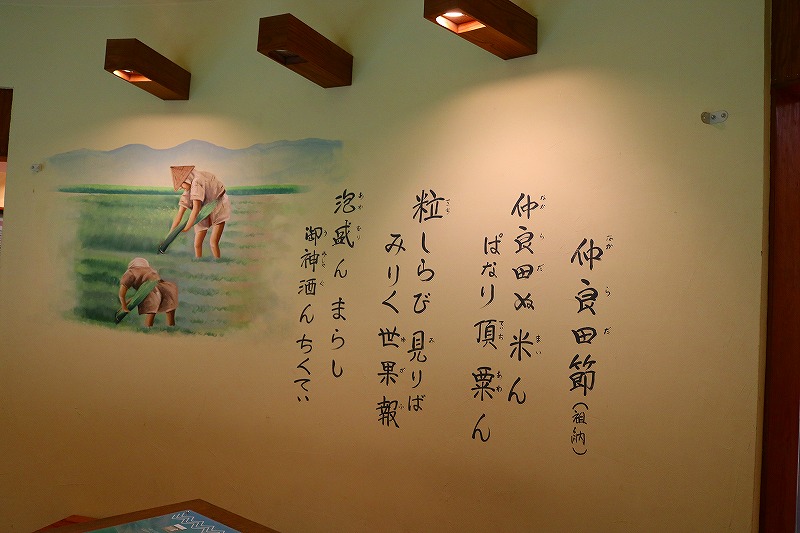 仲良田節(祖納)
仲良田ぬ米ん
ぱなり頂粟ん
粒しらび見りば
みりく世果報
泡盛ん まらし
御神酒んちくてぃ